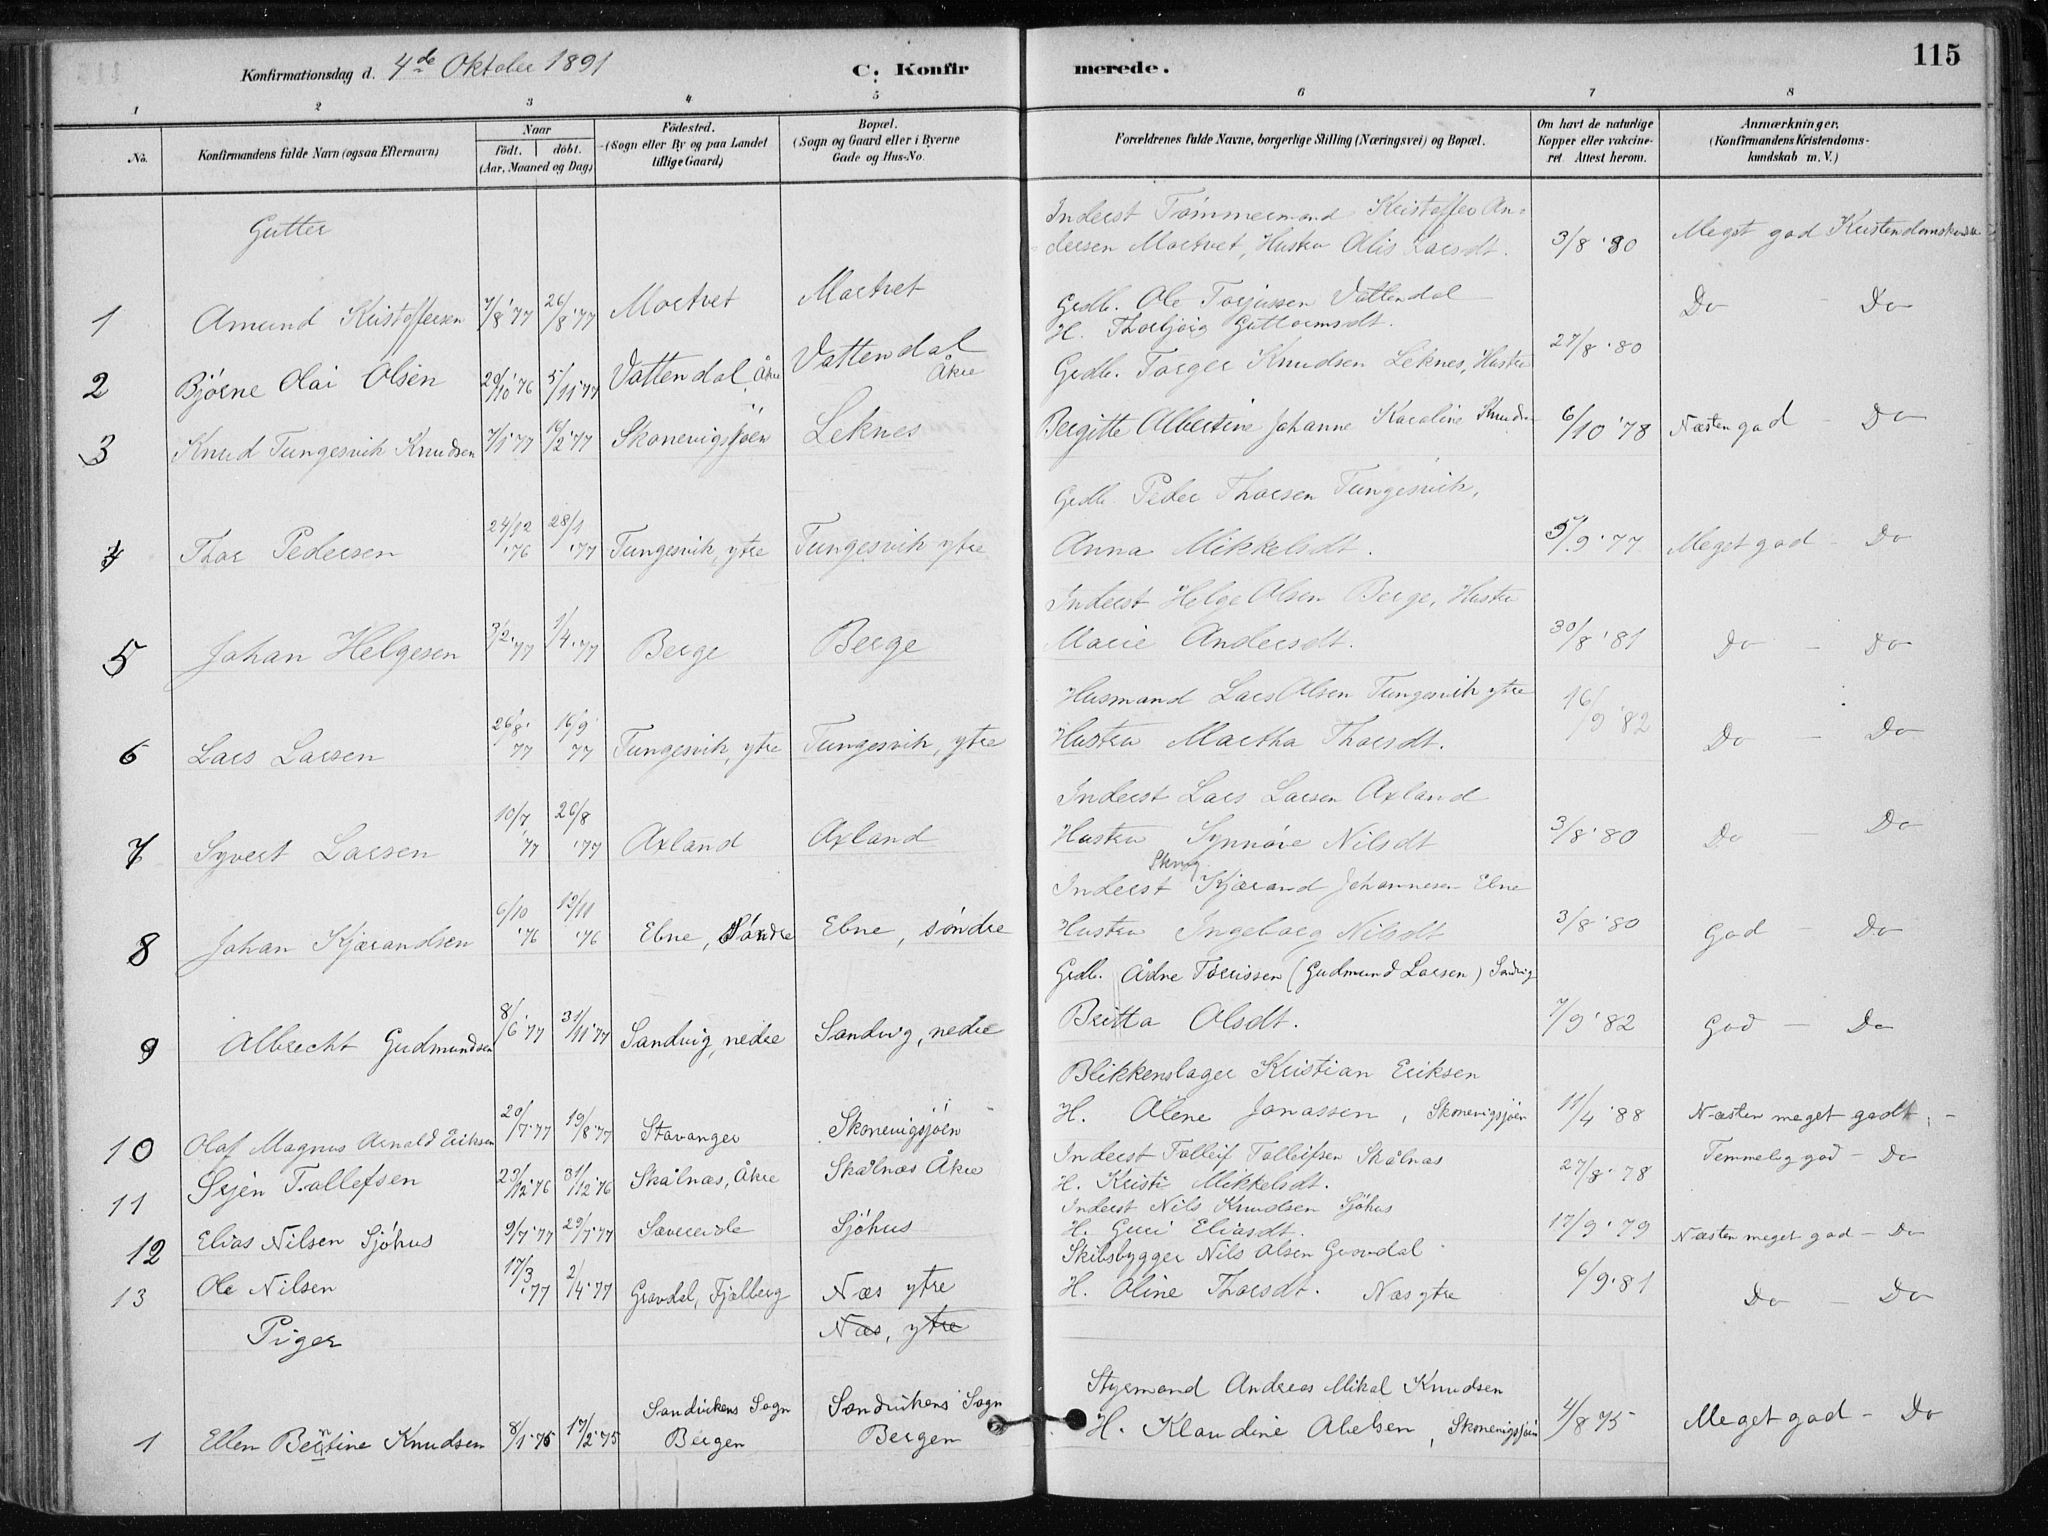 115
Konfirmationsdag d. 4de Oktober 1891 C. Konfirmerede.
1 2 3 4 5 6 7 8
No. Konfirmandens fulde Navn (ogsaa Efternavn)
Naar
Födt. döbt.
(Aar, Maaned og Dag)
Födested.
(Sogn eller By og paa Landet tillige Gaard)
Bopæl.
(Sogn og Gaard eller i Byerne Gade og Hus-No.
Forældrenes fulde Navne, borgerlige Stilling (Næringsvei) og Bopæl.
Om havt de naturlige Kopper eller vakcineret. Attest herom.
Anmærkninger.
(Konfirmandens Kristendomskundskab m. V.)
Gutter
Inderst Tömmermand Kristoffer Andersen Moetvet, Hustru Alis Larsdt. 3/8 '80 Meget god
1 Amund Kristoffersen 7/8 '77 26/8 '77 Moetvet Moetvet
Grdb. Ole Torjussen Vattendal Do - Do
H. Thorbjörg Guttormsdt. 27/8 '80
2 Bjørne Olai Olsen 20/10 '76 5/11 '77 Vattendal, Åkre Vattendal Åkre
Grdb. Torger Knudsen Leknes, Hustru
3 Knud Tungesvik Knudsen 7/1 '77 16/2 '77 Skonevigsjöen Leknes Bergitte Albertine Johanne Karoline 6/10 '78 Næsten god - Do
Grdb. Peder Thorsen Tungesvik,
4 Thor Pedersen 24/12 '76 28/1 '77 Tungesvik, ytre Tungesvik ytre Anna Mikkelsdt. 5/9 '77 Meget god - Do
Inderst Helge Olsen Berge, Hustru
5 Johan Helgesen 3/2 '77 1/4 '77 Berge Berge Marie Andersdt. 30/8 '81 Do - Do
Husmand Lars Olsen Tungesvik ytre
6 Lars Larsen 26/8 '77 16/9 '77 Tungesvik, ytre Tungesvik, ytre Hustru Martha Thorsdt. 16/9 '82 Do - Do
Inderst Lars Larsen Axland
7 Syvert Larsen 10/7 '77 26/8 '77 Axland Axland Hustru Synnöve Nilsdt 3/8 '80 Do Do
Inderst Kjærand Johannesen Ebne
8 Johan Kjærandsen 6/10 '76 12/11 '76 Ebne, Söndre Ebne, söndre Hustru Ingeborg Nilsdt 3/8 '80 God - Do
Grdb. Ådne Torrissen (Gudmund Larsen) Sandvig
9 Albrecht Gudmundsen 8/6 '77 31/11 '77 Sandvig, nedre Sandvig, nedre Britta Olsdt. 7/9 '82 God - Do
Blikkenslager Kristian Eriksen
10 Olaf Magnus Arnald Eriksen 20/7 '77 19/8 '77 Stavanger Skonevigsjöen H. Olene Jonassen, Skonevigsjöen 11/4 '88 Næsten meget godt; -
Inderst Tolleif Tolleifsen Skålnæs
11 Sejen Tollefsen 23/12 '76 31/12 '76 Skålnæs, Åkre Skålnæs Åkre H. Kristi Mikkelsdt. 27/8 '78 Temmelig god - Do
Inderst Nils Knudsen Sjöhus
12 Elias Nilsen Sjöhus 9/7 '77 29/7 '77 Sævereide Sjöhus H. Guri Eliasdt. 17/9 '79 Næsten meget god - Do
Skibsbygger Nils Olsen Gravdal
13 Ole Nilsen 17/3 '77 2/4 '77 Gravdal, Fjelberg Næs ytre H. Oline Thorsdt. Næs ytre 6/9 '81 Do - Do
Piger Næs, ytre
Styrmand Andreas Mikal Knudsen
1 Ellen Berntine Knudsen 8/1 '75 17/2 '75 Sandvikens Sogn Bergen Sandvikens Sogn Bergen H. Klaudine Abelsen, Skonevigsjöen 4/8 75 Meget god - Do